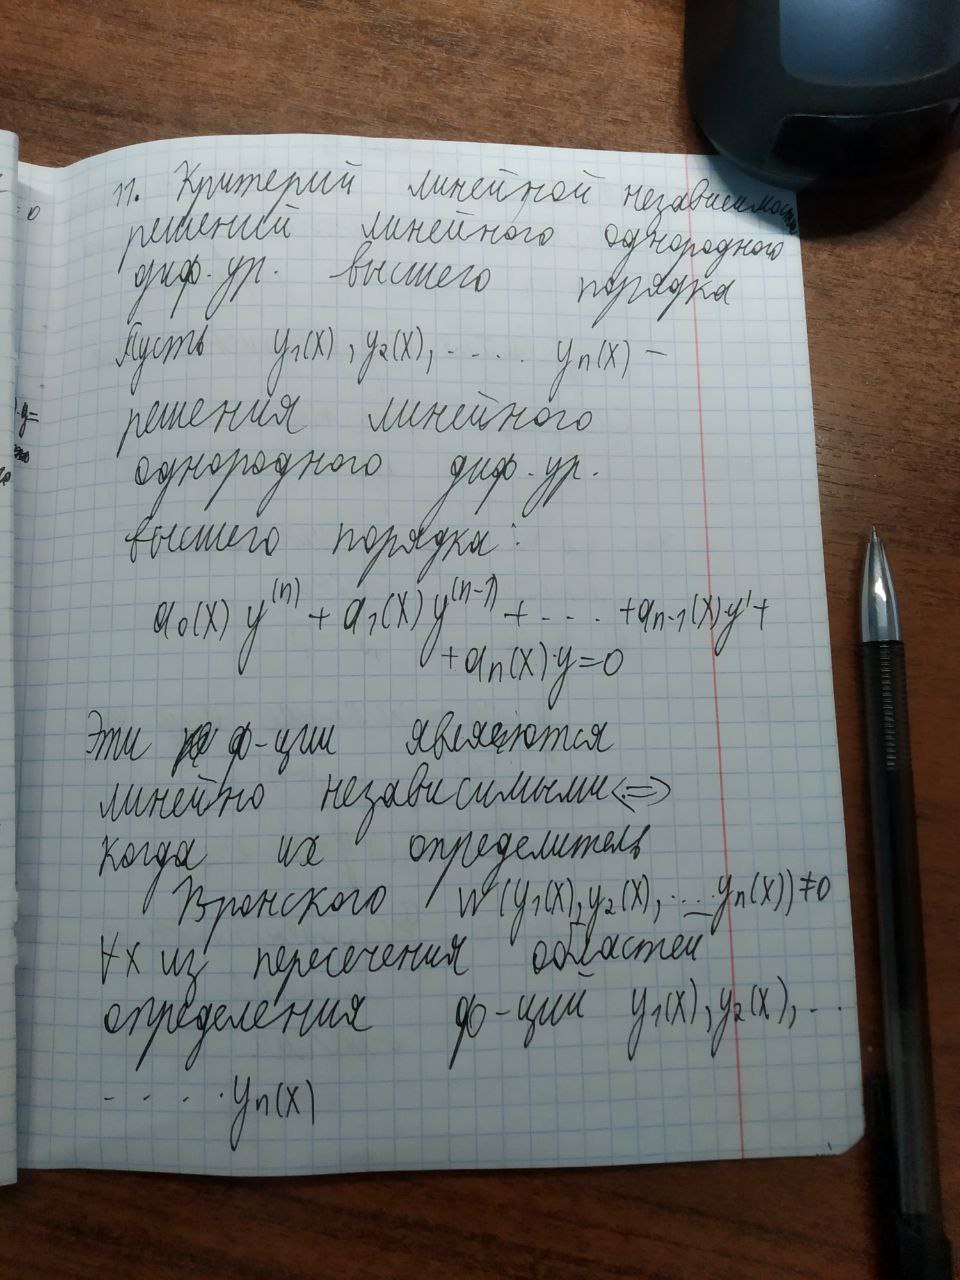 11. Критерий линейной независимости
решений линейного однородного
диф. ур. высшего порядка
Пусть y₁(x), y₂(x), ..... yₙ(x) –
решения линейного
однородного диф. ур.
высшего порядка:
a₀(x) y⁽ⁿ⁾ + a₁(x) y⁽ⁿ⁻¹⁾ + .... + aₙ₋₁(x)·y' +
+ aₙ(x)·y = 0
Эти ф-ции являются
линейно независимыми <=>
когда их определитель
Вронского W(y₁(x), y₂(x), ... yₙ(x)) ≠ 0
∀x из пересечения областей
определения ф-ций y₁(x), y₂(x), ..
.... yₙ(x)